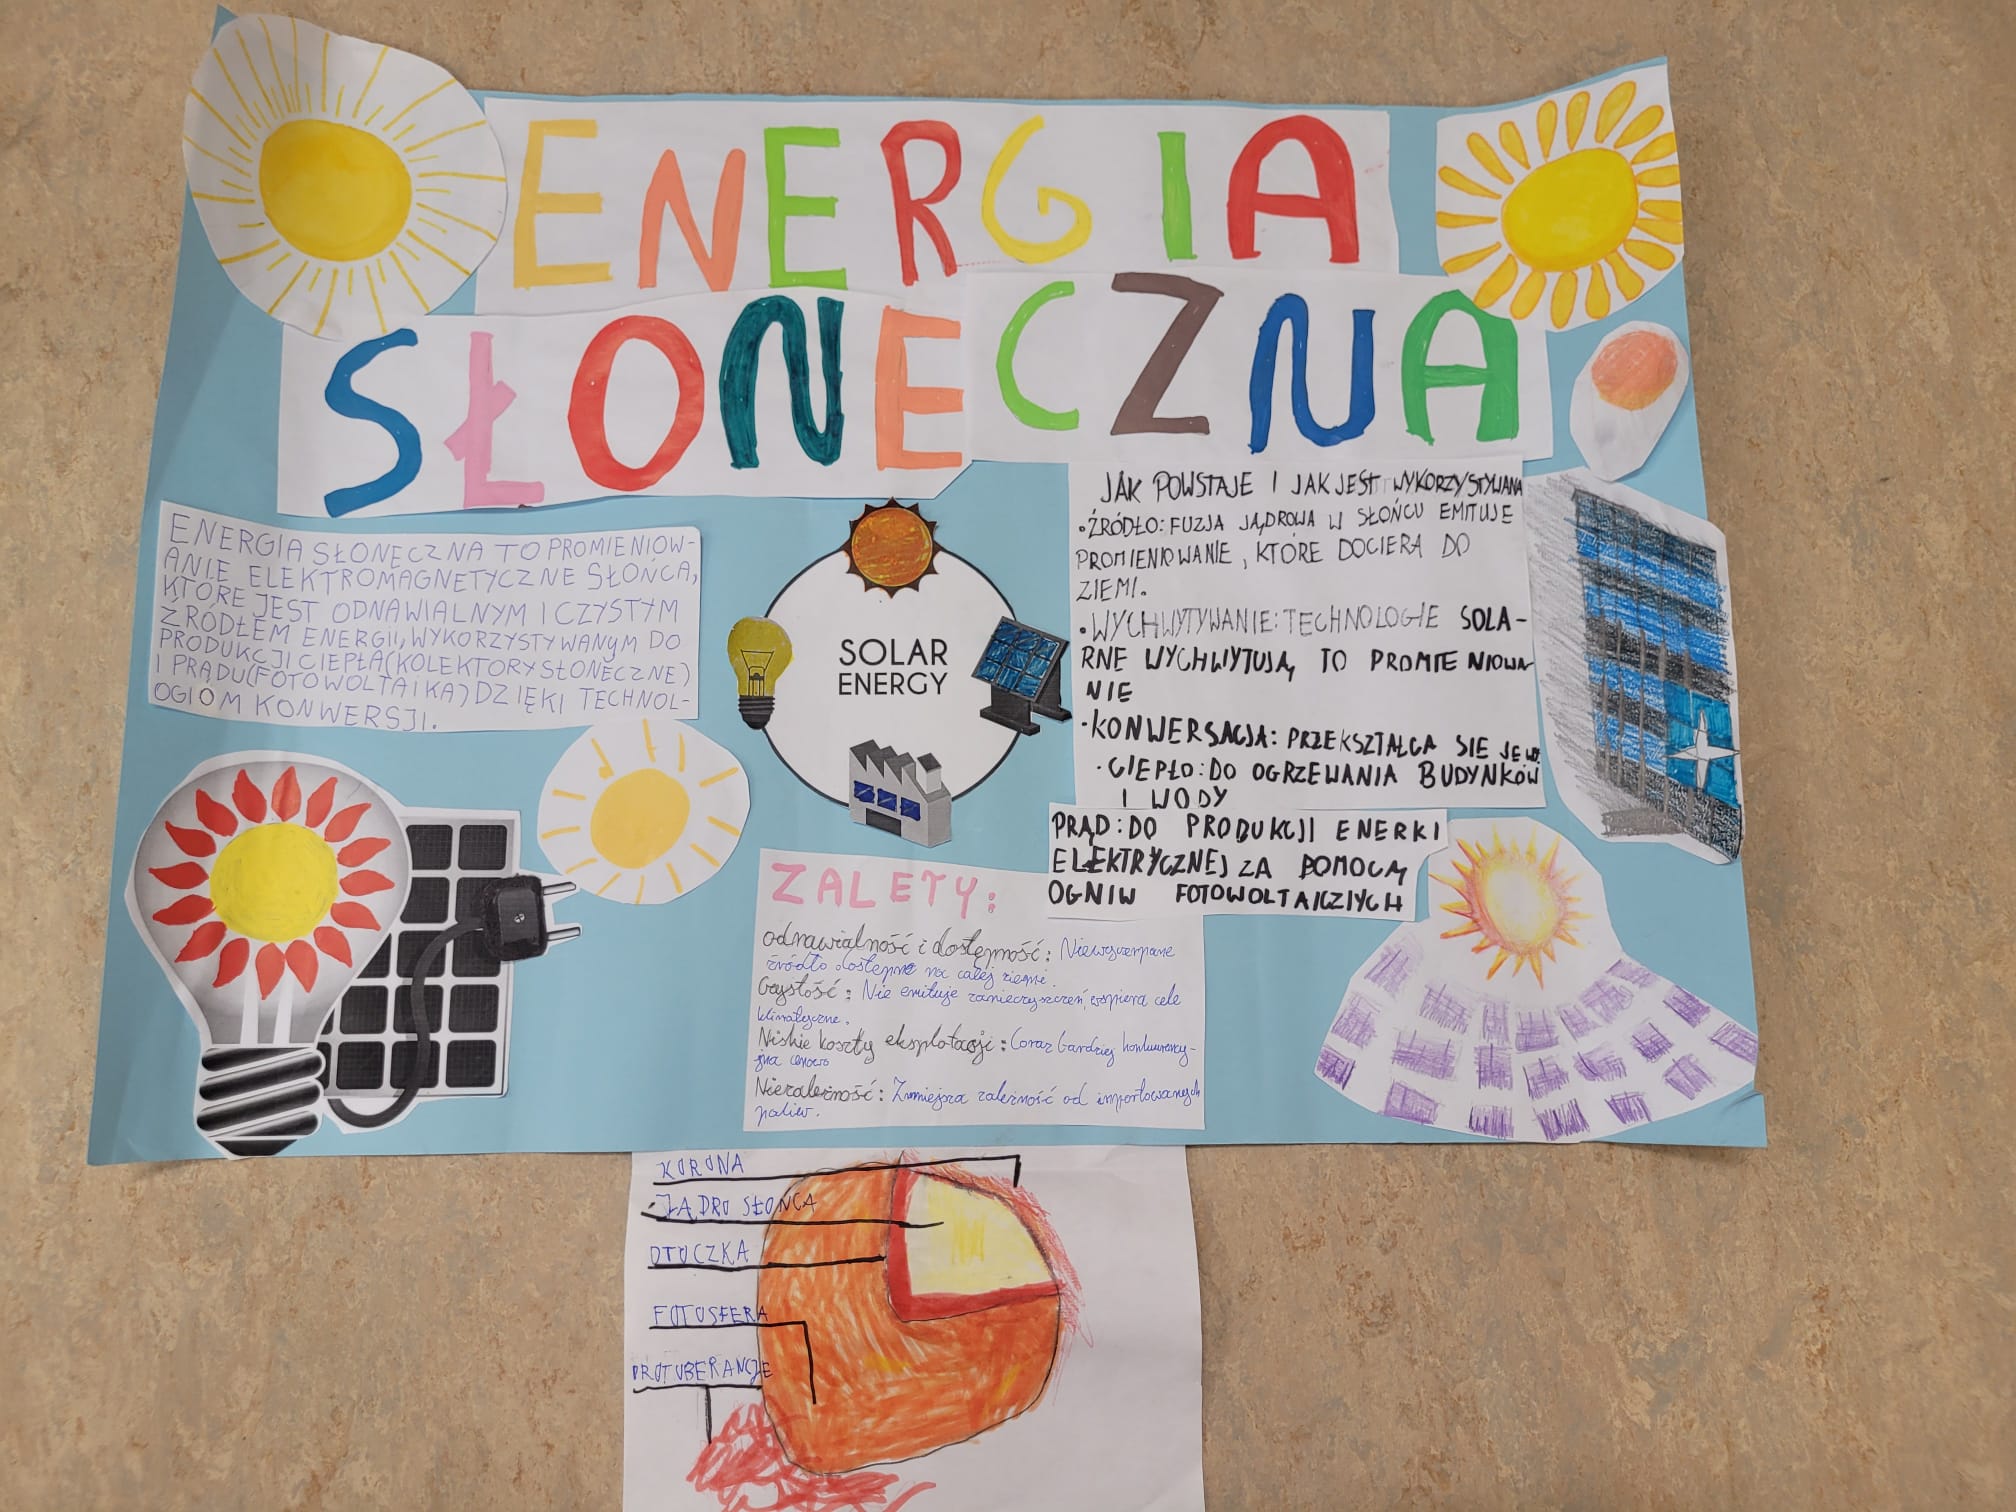 ENERGIA
SŁONECZNA
ENERGIA SŁONECZNA TO PROMIENIOW-
ANIE ELEKTROMAGNETYCZNE SŁOŃCA,
KTÓRE JEST ODNAWIALNYM I CZYSTYM
ŹRÓDŁEM ENERGII, WYKORZYSTYWANYM DO
PRODUKCJI CIEPŁA (KOLEKTORY SŁONECZNE)
I PRĄDU (FOTOWOLTAIKA) DZIĘKI TECHNOL-
OGIOM KONWERSJI.
SOLAR
ENERGY
JAK POWSTAJE I JAK JEST WYKORZYSTYWANA
•ŹRÓDŁO: FUZJA JĄDROWA W SŁOŃCU EMITUJE
PROMIENIOWANIE, KTÓRE DOCIERA DO
ZIEMI.
•WYCHWYTYWANIE: TECHNOLOGIE SOLA-
RNE WYCHWYTUJĄ TO PROMIENIOWA-
NIE
•KONWERSACJA: PRZEKSZTAŁCA SIĘ JE W:
•CIEPŁO: DO OGRZEWANIA BUDYNKÓW
I WODY
PRĄD: DO PRODUKCJI ENERKI
ELEKTRYCZNEJ ZA POMOCĄ
OGNIW FOTOWOLTAICZIYCH
ZALETY:
odnawialność i dostępność: Niewyczerpane
źródło dostępne na całej ziemi.
Czystość: Nie emituje zanieczyszczeń, wspiera cele
klimatyczne.
Niskie koszty eksplotacji: Coraz bardziej konkurency-
jna cenowo
Niezależność: Zmiejsza zależność od importowanych
paliw.
KORONA
JĄDRO SŁOŃCA
OTOCZKA
FOTOSFERA
PROTUBERANCJE